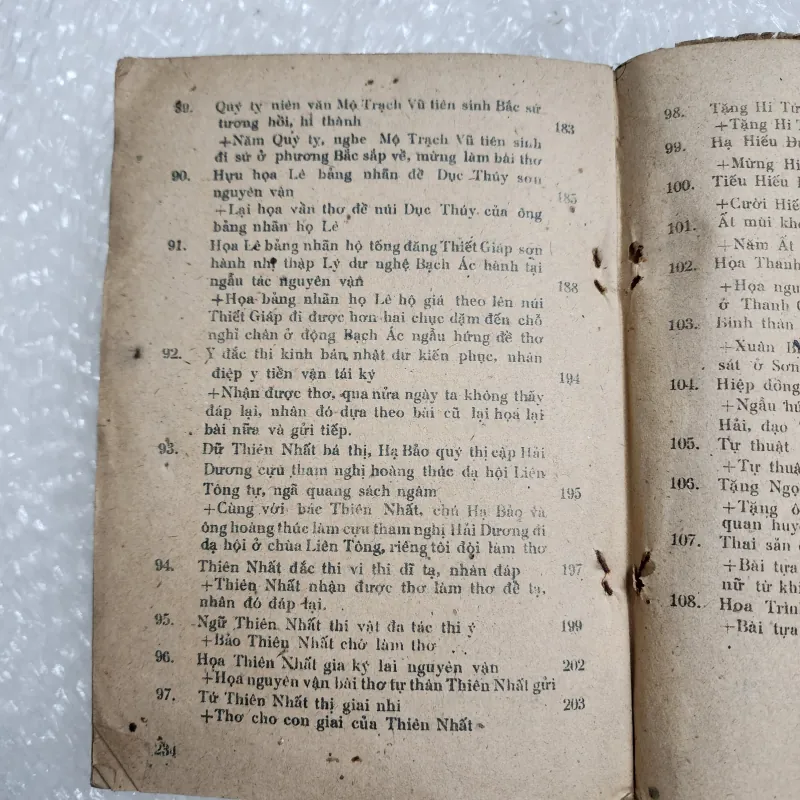 89. Quý tỵ niên văn Mộ Trạch Vũ tiên sinh Bắc sứ
tương hồi, hỉ thành 183
+Năm Quý tỵ, nghe Mộ Trạch Vũ tiên sinh
đi sứ ở phương Bắc sắp về, mừng làm bài thơ
90. Hựu họa Lê bảng nhãn đề Dục Thúy sơn
nguyên vận 185
+Lại họa vần thơ đề núi Dục Thúy của ông
bảng nhãn họ Lê
91. Họa Lê bảng nhãn hộ tống đăng Thiết Giáp sơn
hành nhị thập Lý dư nghệ Bạch Ác hành tại
ngẫu tác nguyên vận 188
+Họa bảng nhãn họ Lê hộ giá theo lên núi
Thiết Giáp đi được hơn hai chục dặm đến chỗ
nghỉ chân ở động Bạch Ác ngẫu hứng đề thơ
92. Y đắc thi kinh bán nhật dư kiến phục, nhân
điệp y tiền vận tái ký 194
+Nhận được thơ, qua nửa ngày ta không thấy
đáp lại, nhân đó dựa theo bài cũ lại họa lại
bài nữa và gửi tiếp.
93. Dữ Thiên Nhất bá thị, Hạ Bảo quý thị cập Hải
Dương cựu tham nghị hoàng thúc dạ hội Liên
Tông tự, ngã quang sách ngâm 195
+Cùng với bác Thiên Nhất, chú Hạ Bảo và
ông hoàng thúc làm cựu tham nghị Hải Dương đi
dạ hội ở chùa Liên Tông, riêng tôi đòi làm thơ
94. Thiên Nhất đắc thi vi thi dĩ tạ, nhân đáp 197
+Thiên Nhất nhận được thơ làm thơ để tạ,
nhân đó đáp lại.
95. Ngữ Thiên Nhất thi vật đa tác thi ý 199
+Bảo Thiên Nhất chớ làm thơ
96. Họa Thiên Nhất gia ký lai nguyên vận 202
+Họa nguyên vận bài thơ tự thân Thiên Nhất gửi
97. Tứ Thiên Nhất thị giai nhi 203
+Thơ cho con giai của Thiên Nhất
234
98. Tặng Hi Từ
+Tặng Hi T
99. Hạ Hiếu
+Mừng Hi
100. Tiếu Hiếu
+Cười Hiế
101. Ất mùi kh
+Năm Ất
102. Họa Thanh
+Họa ngu
ở Thanh
103. Bính thân
+Xuân
sát ở Sơn
104. Hiệp đồng
+Ngẫu hứ
Hải, đạo
105. Tự thuật
+Tự thuật
106. Tặng Ngọ
+Tặng ô
quan huy
107. Thai sản
+Bài tựa
nữ từ khi
108. Họa Trìn
+Bài tựa